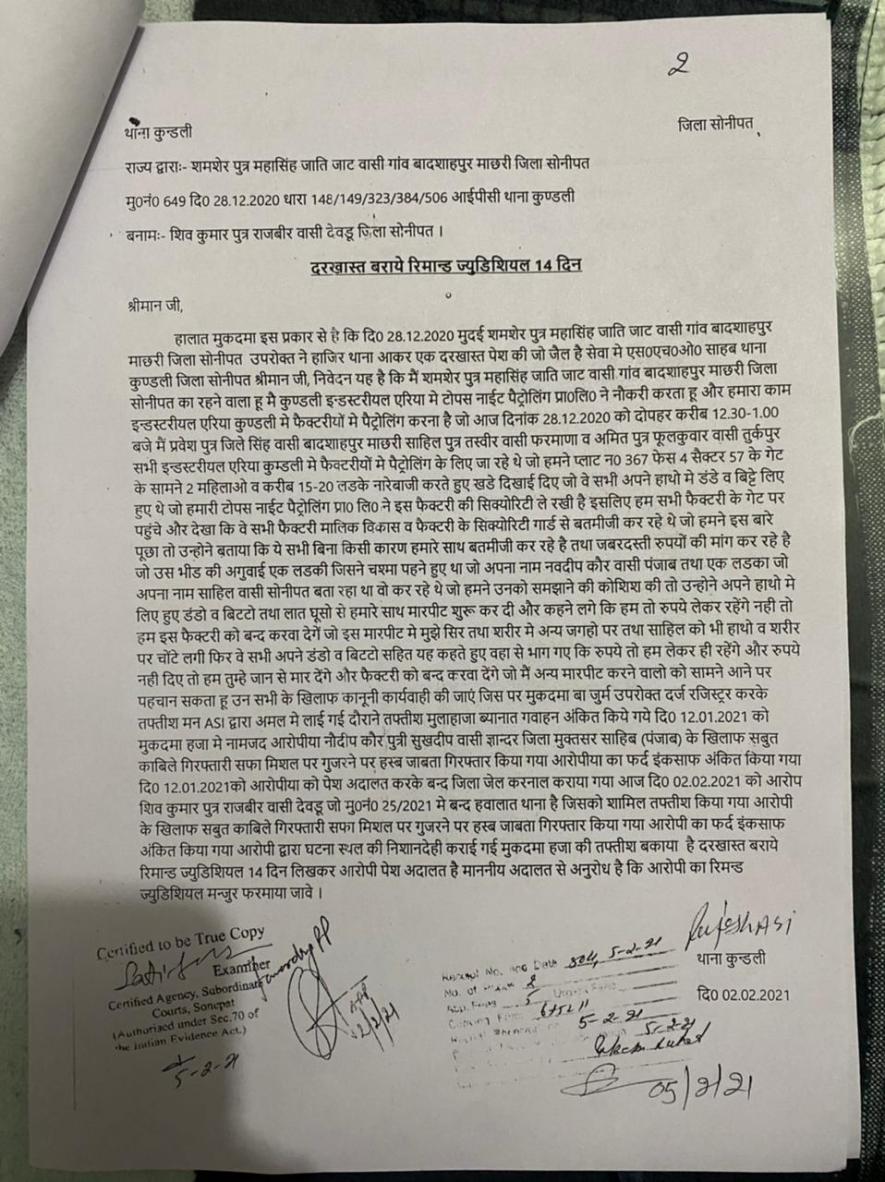 2
थाना कुन्डली जिला सोनीपत
राज्य द्वाराः- शमशेर पुत्र महासिंह जाति जाट वासी गांव बादशाहपुर माछरी जिला सोनीपत
मु0नं0 649 दि0 28.12.2020 धारा 148/149/323/384/506 आईपीसी थाना कुण्डली
बनामः- शिव कुमार पुत्र राजबीर वासी देवडू जिला सोनीपत ।
दरखास्त बराये रिमान्ड ज्युडिशियल 14 दिन
श्रीमान जी,
हालात मुकदमा इस प्रकार से है कि दि0 28.12.2020 मुदई शमशेर पुत्र महासिंह जाति जाट वासी गांव बादशाहपुर
माछरी जिला सोनीपत उपरोक्त ने हाजिर थाना आकर एक दरखास्त पेश की जो जैल है सेवा मे एस0एच0ओ0 साहब थाना
कुण्डली जिला सोनीपत श्रीमान जी, निवेदन यह है कि मैं शमशेर पुत्र महासिंह जाति जाट वासी गांव बादशाहपुर माछरी जिला
सोनीपत का रहने वाला हू मै कुण्डली इन्डस्टरीयल एरिया मे टोपस नाईट पैट्रोलिंग प्रा0लि0 ने नौकरी करता हू और हमारा काम
इन्डस्टरीयल एरिया कुण्डली मे फैक्टरीयों मे पैट्रोलिंग करना है जो आज दिनांक 28.12.2020 को दोपहर करीब 12.30-1.00
बजे मैं प्रवेश पुत्र जिले सिंह वासी बादशाहपुर माछरी साहिल पुत्र तस्वीर वासी फरमाणा व अमित पुत्र फूलकुवार वासी तुर्कपुर
सभी इन्डस्टरीयल एरिया कुम्डली मे फैक्टरीयों मे पैट्रोलिंग के लिए जा रहे थे जो हमने प्लाट न0 367 फेस 4 सैक्टर 57 के गेट
के सामने 2 महिलाओ व करीब 15-20 लडके नारेबाजी करते हुए खडे दिखाई दिए जो वे सभी अपने हाथो मे डंडे व बिट्टे लिए
हुए थे जो हमारी टोपस नाईट पैट्रोलिंग प्रा0 लि0 ने इस फैक्टरी की सिक्योरिटी ले रखी है इसलिए हम सभी फैक्टरी के गेट पर
पहुंचे और देखा कि वे सभी फैक्टरी मालिक विकास व फैक्टरी के सिक्योरिटी गार्ड से बतमीजी कर रहे थे जो हमने इस बारे
पूछा तो उन्होने बताया कि ये सभी बिना किसी कारण हमारे साथ बतमीजी कर रहे है तथा जबरदस्ती रुपयों की मांग कर रहे है
जो उस भीड की अगुवाई एक लडकी जिसने चश्मा पहने हुए था जो अपना नाम नवदीप कौर वासी पंजाब तथा एक लडका जो
अपना नाम साहिल वासी सोनीपत बता रहा था वो कर रहे थे जो हमने उनको समझाने की कोशिश की तो उन्होने अपने हाथो मे
लिए हुए डंडो व बिटटो तथा लात घूसो से हमारे साथ मारपीट शुरू कर दी और कहने लगे कि हम तो रुपये लेकर रहेंगे नही तो
हम इस फैक्टरी को बन्द करवा देगें जो इस मारपीट मे मुझे सिर तथा शरीर मे अन्य जगहो पर तथा साहिल को भी हाथो व शरीर
पर चोंटे लगी फिर वे सभी अपने डंडो व बिटटो सहित यह कहते हुए वहा से भाग गए कि रुपये तो हम लेकर ही रहेंगे और रुपये
नही दिए तो हम तुम्हे जान से मार देंगे और फैक्टरी को बन्द करवा देंगे जो मैं अन्य मारपीट करने वालो को सामने आने पर
पहचान सकता हू उन सभी के खिलाफ कानूनी कार्यवाही की जाएं जिस पर मुकदमा बा जुर्म उपरोक्त दर्ज रजिस्ट्रर करके
तफ्तीश मन ASI द्वारा अमल मे लाई गई दौराने तफ्तीश मुलाहाजा ब्यानात गवाहन अंकित किये गये दि0 12.01.2021 को
मुकदमा हजा मे नामजद आरोपीया नौदीप कौर पुत्री सुखदीप वासी ज्ञान्दर जिला मुक्तसर साहिब (पंजाब) के खिलाफ सबुत
काबिले गिरफ्तारी सफा मिशल पर गुजरने पर हस्ब जाबता गिरफ्तार किया गया आरोपीया का फर्द इंकसाफ अंकित किया गया
दि0 12.01.2021को आरोपीया को पेश अदालत करके बन्द जिला जेल करनाल कराया गया आज दि0 02.02.2021 को आरोप
शिव कुमार पुत्र राजबीर वासी देवडू जो मु0नं0 25/2021 मे बन्द हवालात थाना है जिसको शामिल तफ्तीश किया गया आरोपी
के खिलाफ सबुत काबिले गिरफ्तारी सफा मिशल पर गुजरने पर हस्ब जाबता गिरफ्तार किया गया आरोपी का फर्द इंकसाफ
अंकित किया गया आरोपी द्वारा घटना स्थल की निशानदेही कराई गई मुकदमा हजा की तफ्तीश बकाया है दरखास्त बराये
रिमान्ड ज्युडिशियल 14 दिन लिखकर आरोपी पेश अदालत है माननीय अदालत से अनुरोध है कि आरोपी का रिमन्ड
ज्युडिशियल मन्जुर फरमाया जावे ।
Certified to be True Copy
Examiner
Certified Agency, Subordinate
Courts, Sonepat
(Authorised under Sec.70 of
the Indian Evidence Act.)
5-2-21
2/2/21
No. and Date 5-2-21
5-2-21
5/2-21
05/2/21
Rajesh ASI
थाना कुन्डली
दि0 02.02.2021